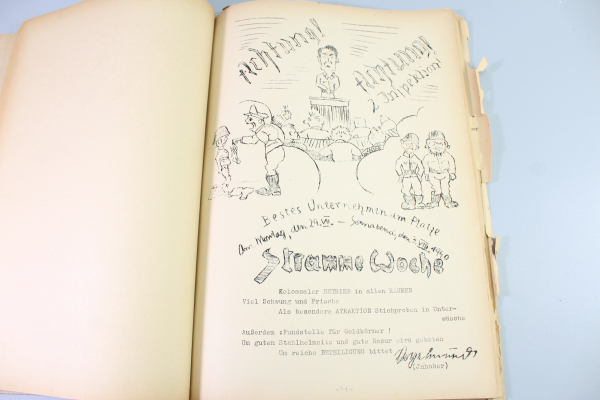 Achtung!
Achtung!
2 Inspektion!
Bestes Unternehmen am Platze
Am Montag, den 29.VII. — Sonnabend, den 3.VIII.1940
Stramme Woche
Kolossaler BETRIEB in allen RÄUMEN
Viel Schwung und Frische
Als besondere ATRAKTION Stichproben in Unter-
wäsche
Außerdem :Fundstelle für Goldkörner !
Um guten Stahlhelmsitz und gute Rasur wird gebeten
Um reiche BETEILIGUNG bittet
(Inhaber)